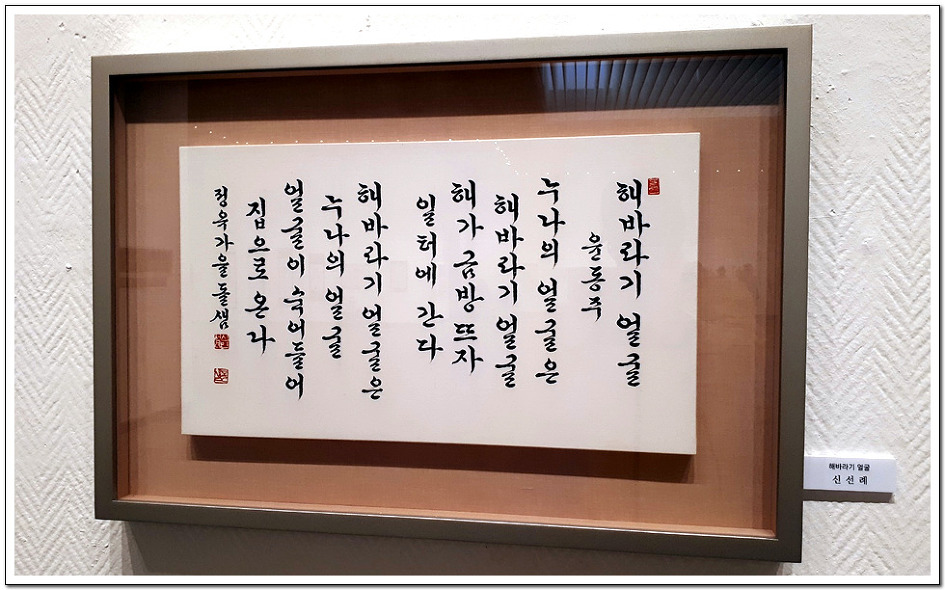 해바라기 얼굴
윤동주
누나의 얼굴은
해바라기 얼굴
해가 금방 뜨자
일터에 간다
해바라기 얼굴은
누나의 얼굴
얼굴이 숙어들어
집으로 온다
정유가을 돌샘
해바라기 얼굴
신선례